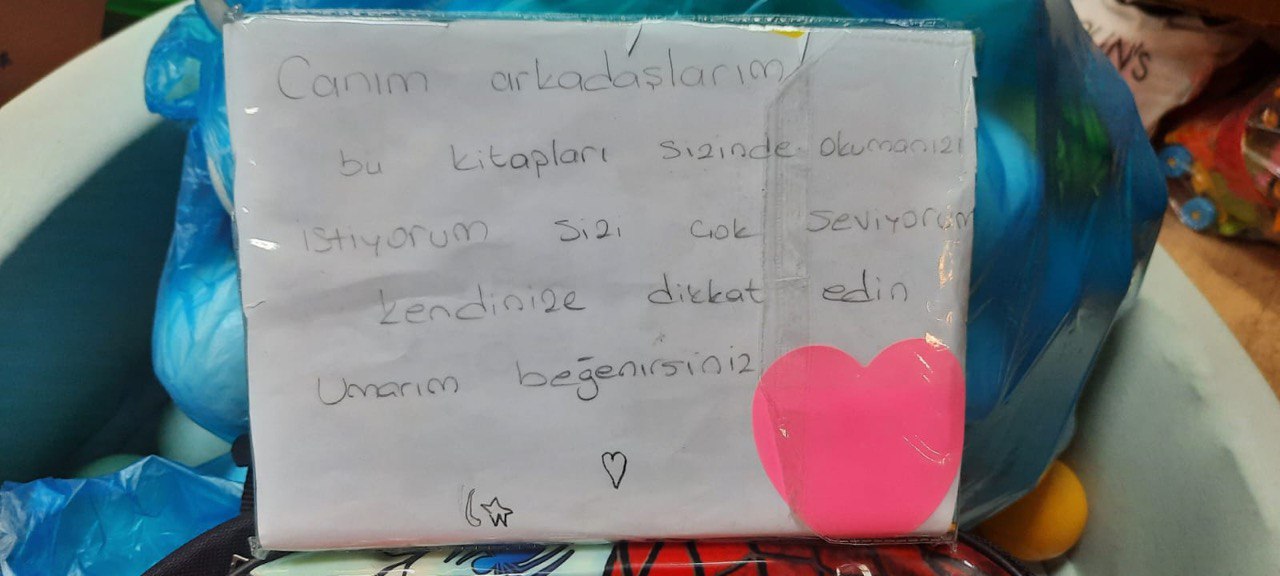 Canım arkadaşlarım
bu kitapları sizinde okumanızı
istiyorum sizi çok seviyorum
kendinize dikkat edin
Umarım beğenirsiniz